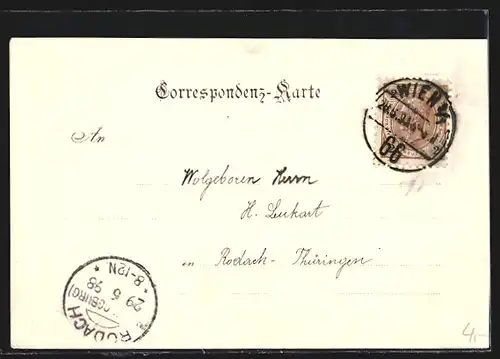 Correspondenz-Karte
WIEN
66
An
Wolgeboren Herrn
H. Leukart
in Rodach - Thüringen
8-12N.
29 6 98
(COBURG)
RODACH
4,-